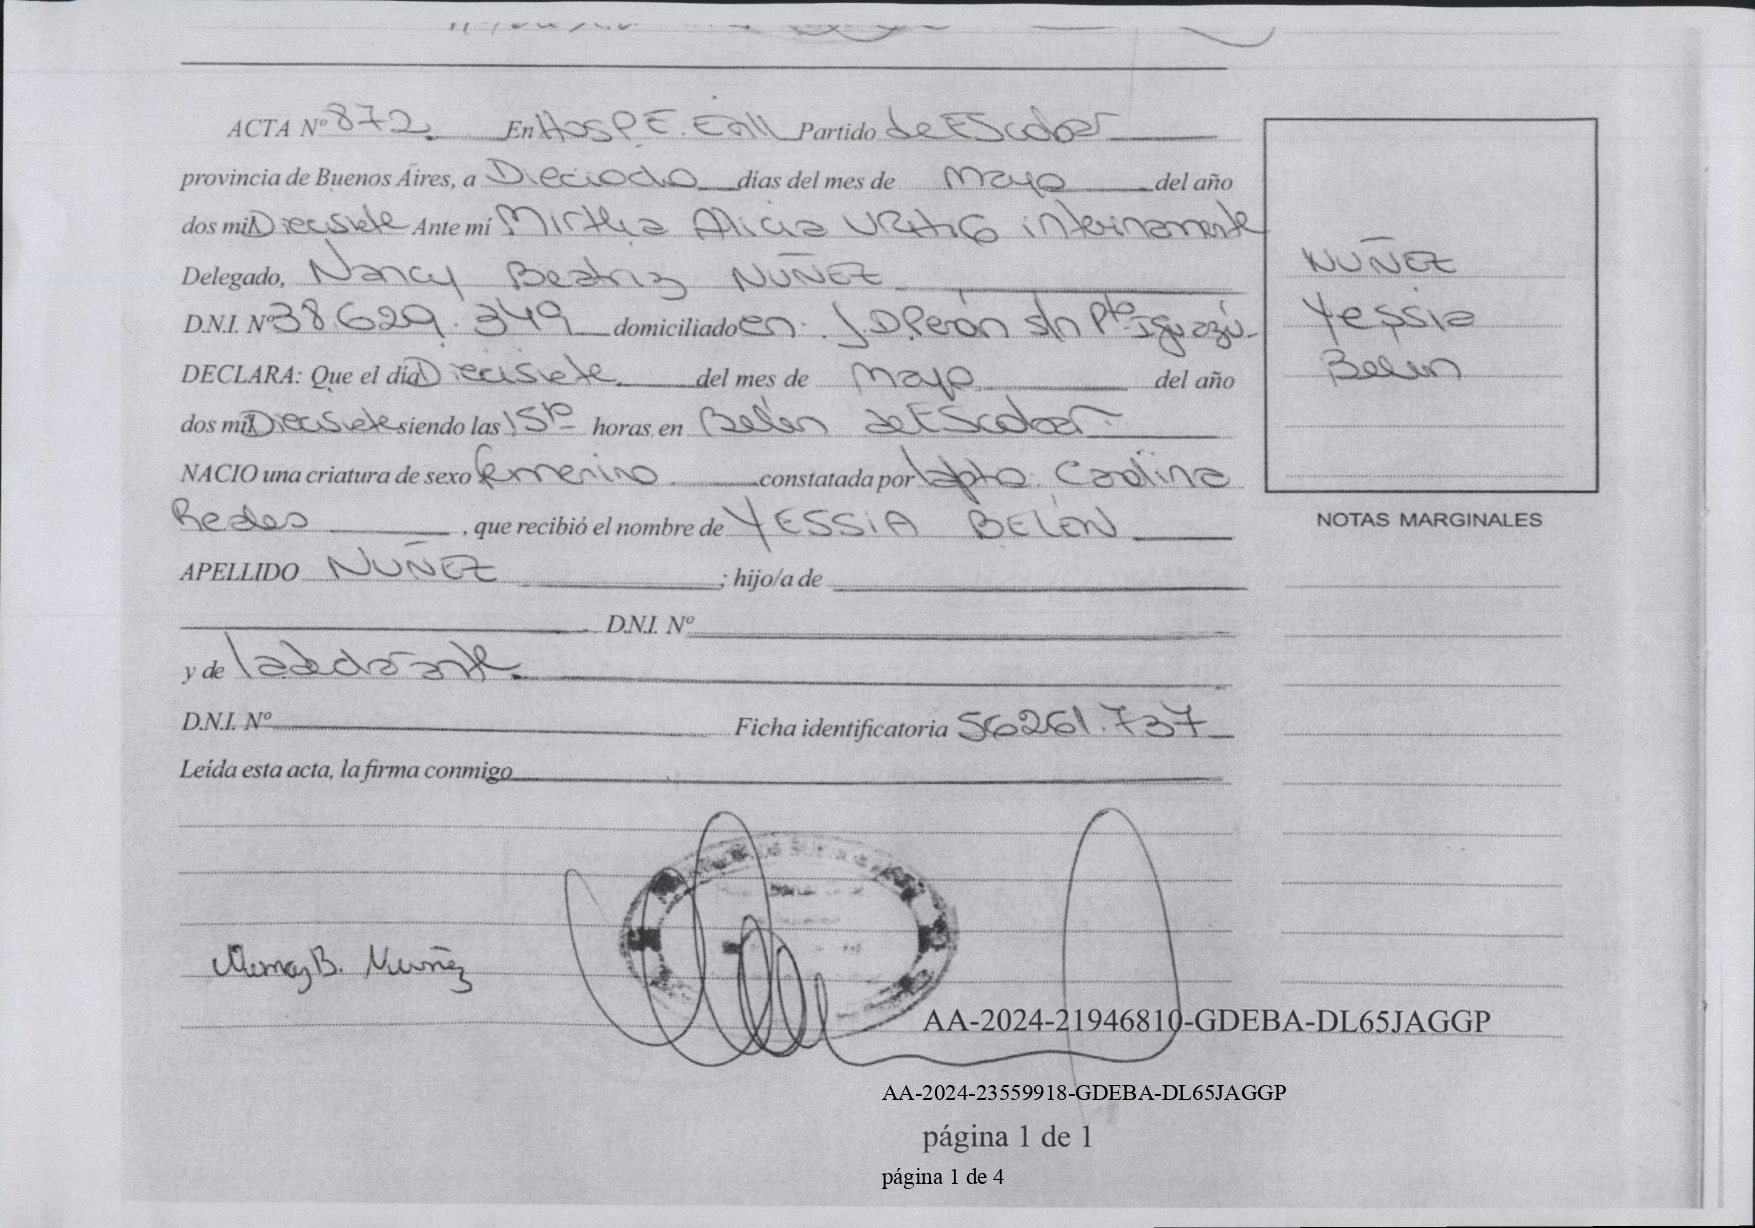 ACTA Nº 872. En Hosp E. Erill Partido de Escobar
provincia de Buenos Aires, a Dieciocho días del mes de Mayo del año
dos mil Diecisiete Ante mí Mirtha Alicia interinamente
Delegado, Nancy Beatriz NUÑEZ
D.N.I. Nº 38.629.349 domiciliado en J D Perón s/n Pto Iguazú.
DECLARA: Que el día Diecisiete del mes de Mayo del año
dos mil Diecisiete siendo las 15 horas, en Belén de Escobar
NACIO una criatura de sexo femenino constatada por la Carolina
, que recibió el nombre de YESSIA BELÉN
APELLIDO NUÑEZ ; hijo/a de
D.N.I. Nº
y de la declarante.
D.N.I. Nº Ficha identificatoria 56261.737
Leída esta acta, la firma conmigo
NUÑEZ
Yessia
Belén
NOTAS MARGINALES
Nancy B. Nuñez
AA-2024-21946810-GDEBA-DL65JAGGP
AA-2024-23559918-GDEBA-DL65JAGGP
página 1 de 1
página 1 de 4